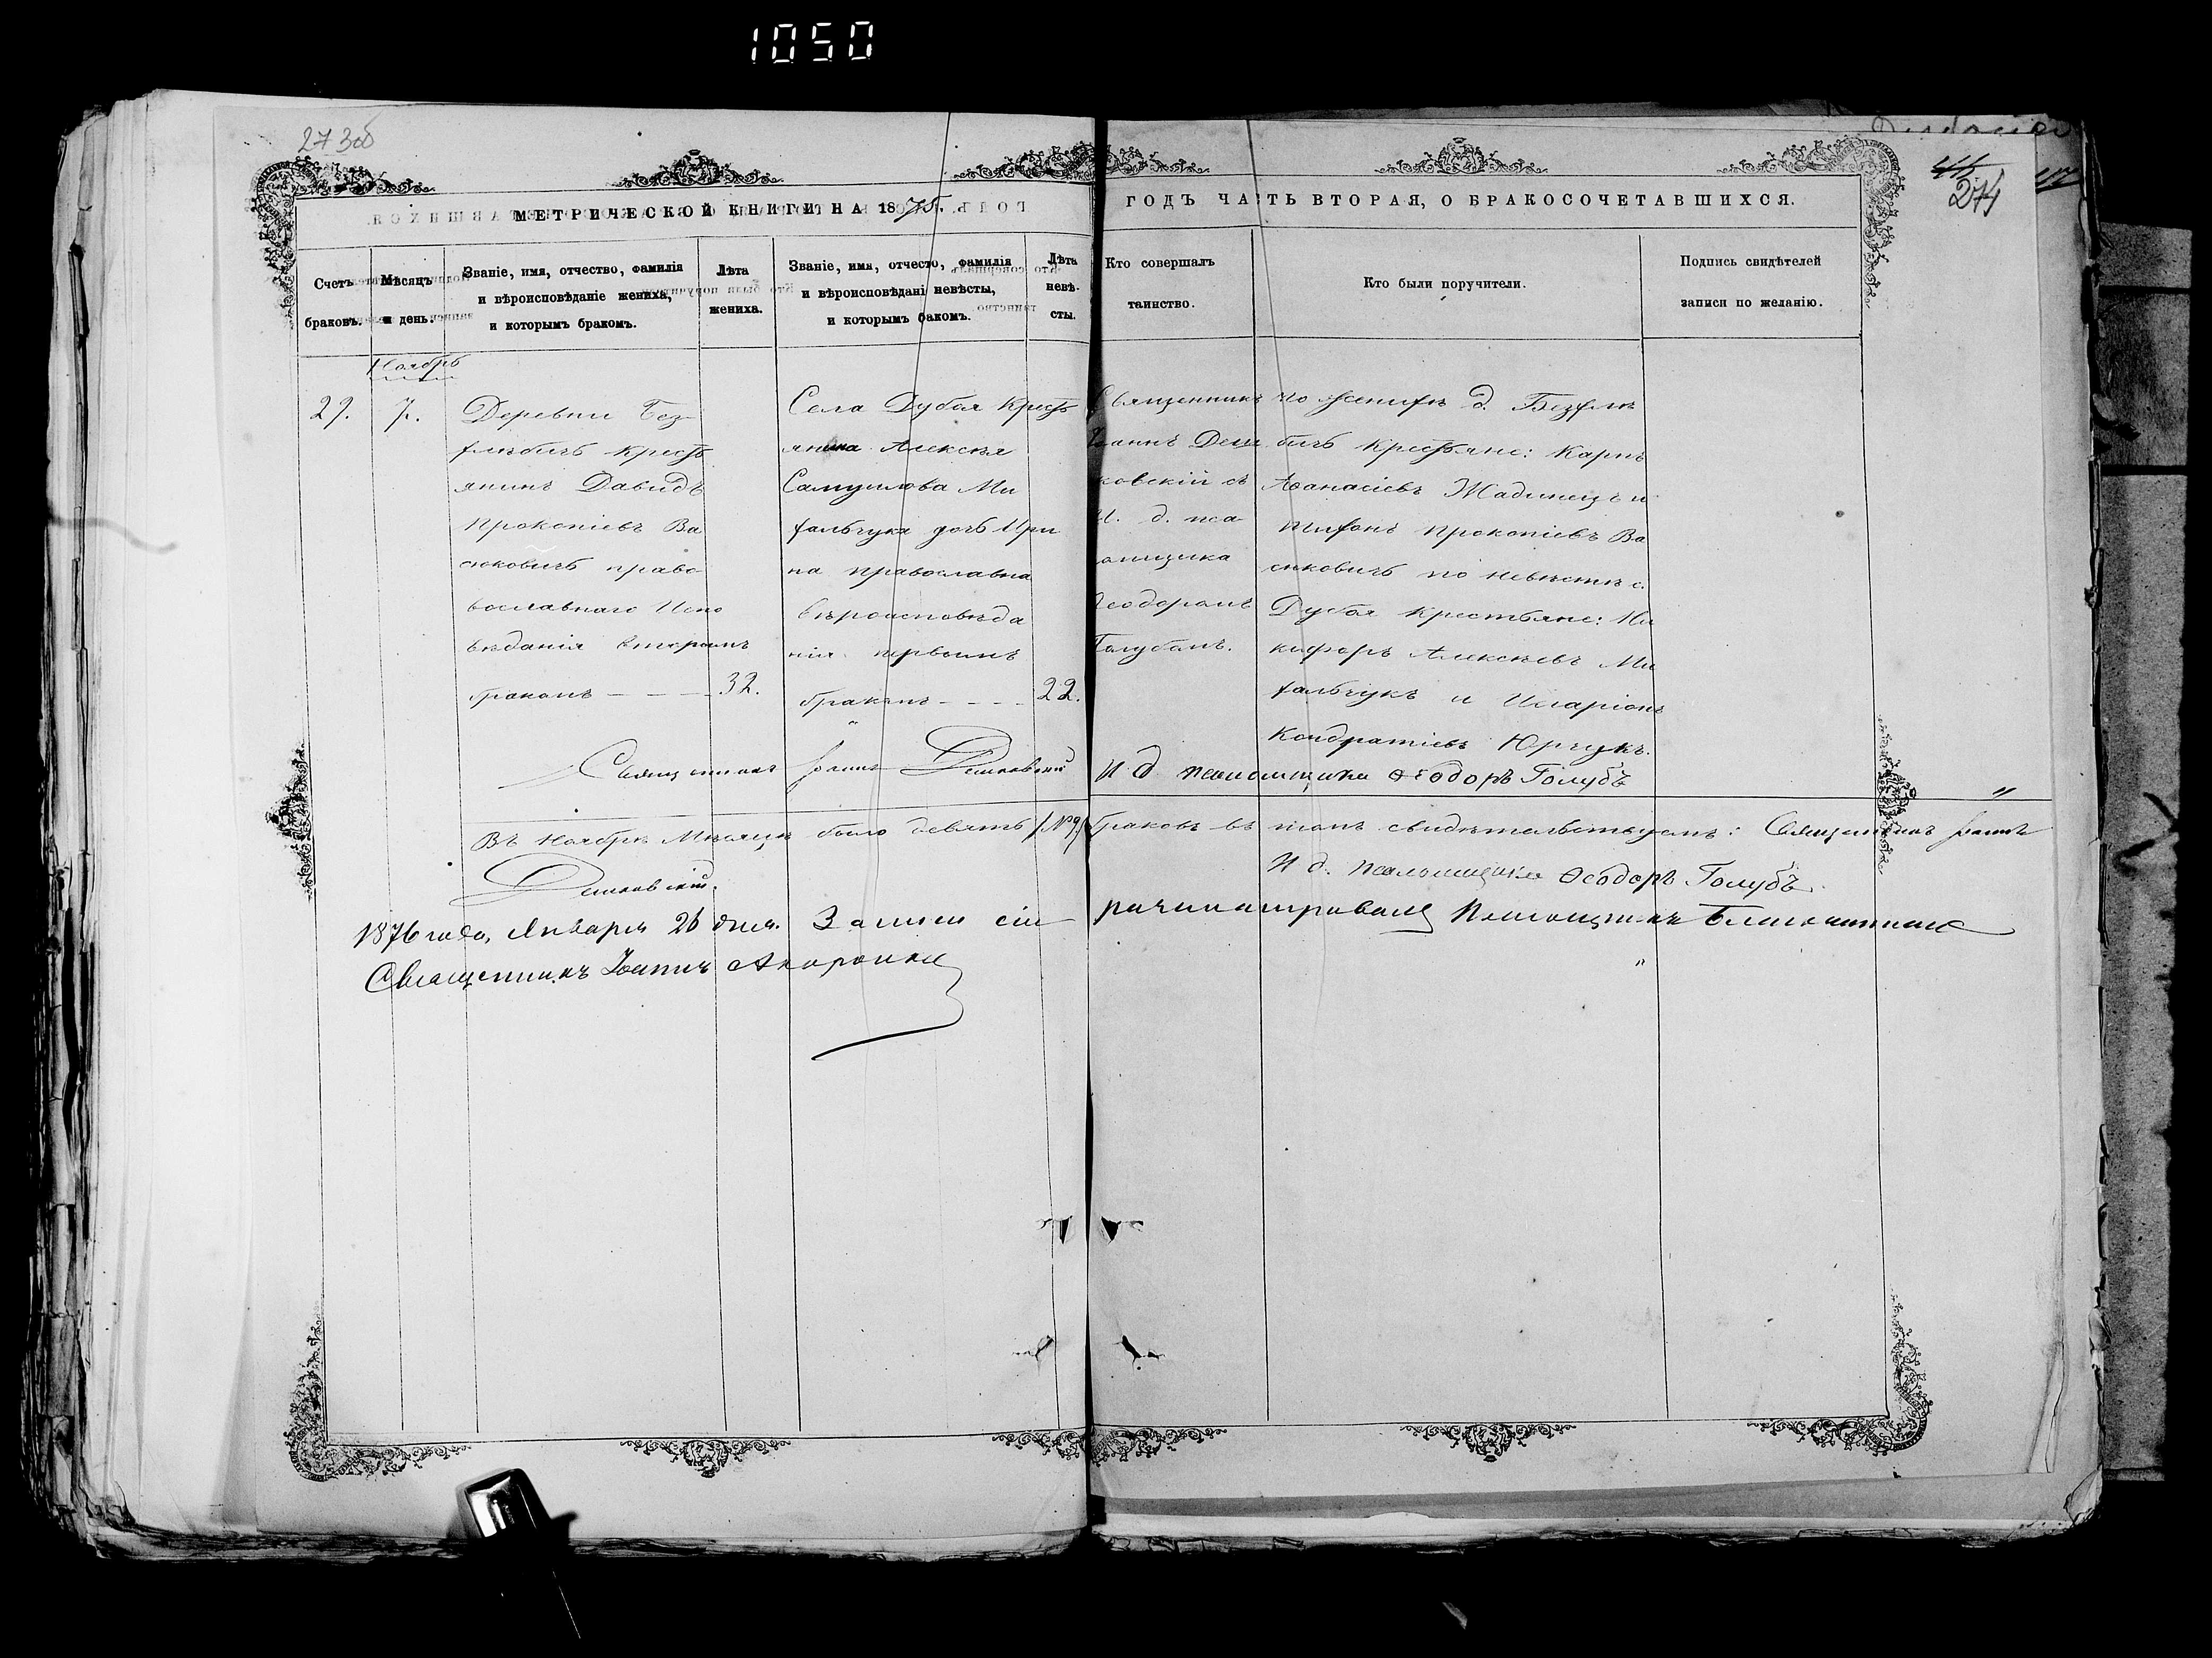 1050
273об
274
МЕТРИЧЕСКОЙ КНИГИ НА 1875.
ГОДЪ ЧАСТЬ ВТОРАЯ, О БРАКОСОЧЕТАВШИХСЯ.
Счетъ
браковъ.
Мѣсяцъ
и день.
Званіе, имя, отчество, фамилія
и вѣроисповѣданіе жениха,
и которымъ бракомъ.
Лѣта
жениха.
Званіе, имя, отчесто, фамилія
и вѣроисповѣдані невѣсты,
и которымъ бакомъ.
Лѣта
невѣ-
сты.
Кто совершалъ
таинство.
Кто были поручители.
Подпись свидѣтелей
записи по желанію.
Ноябрь
27.
7.
Деревни Без
хлѣбичъ Крест
янинъ Давидъ
Прокопіевъ Ва
сюковичъ право
вославнаго Испо
вѣданія вторымъ
бракомъ - - - -
32.
Села Дубоя Крест
янина Алексѣя
Самуилова Ми
хальчука дочь Ири
на православна
вѣроисповѣда
нія первымъ
бракомъ - - - -
22.
Священникъ
Іоаннъ Деш
ковскій съ
И. д. пса
ломщика
Ѳеодоромъ
Голубомъ.
по женихѣ д. Безхлѣ
бичъ крестьяне: Карпъ
Аѳанасіевъ Жадинецъ и
Тифонъ Прокопіевъ Ва
сюковичъ по невѣстѣ с.
Дубоя Крестьяне: Ни
кифоръ Алексѣевъ Ми
хальчукъ и Иларіонъ
Кондратіевъ Юрчукъ.
Священникъ Іоаннъ Дешковскій
И д псаломщика Ѳеодоръ Голубъ
Въ Ноябрѣ Мѣсяцѣ было девять /№9/ браковъ въ томъ свидѣтельствуемъ: Священникъ Іоаннъ
Дешковскій.
И д. псаломщика Ѳеодоръ Голубъ
1876 года, Января 26 дня. Записи сіи
Священникъ Іоаннъ